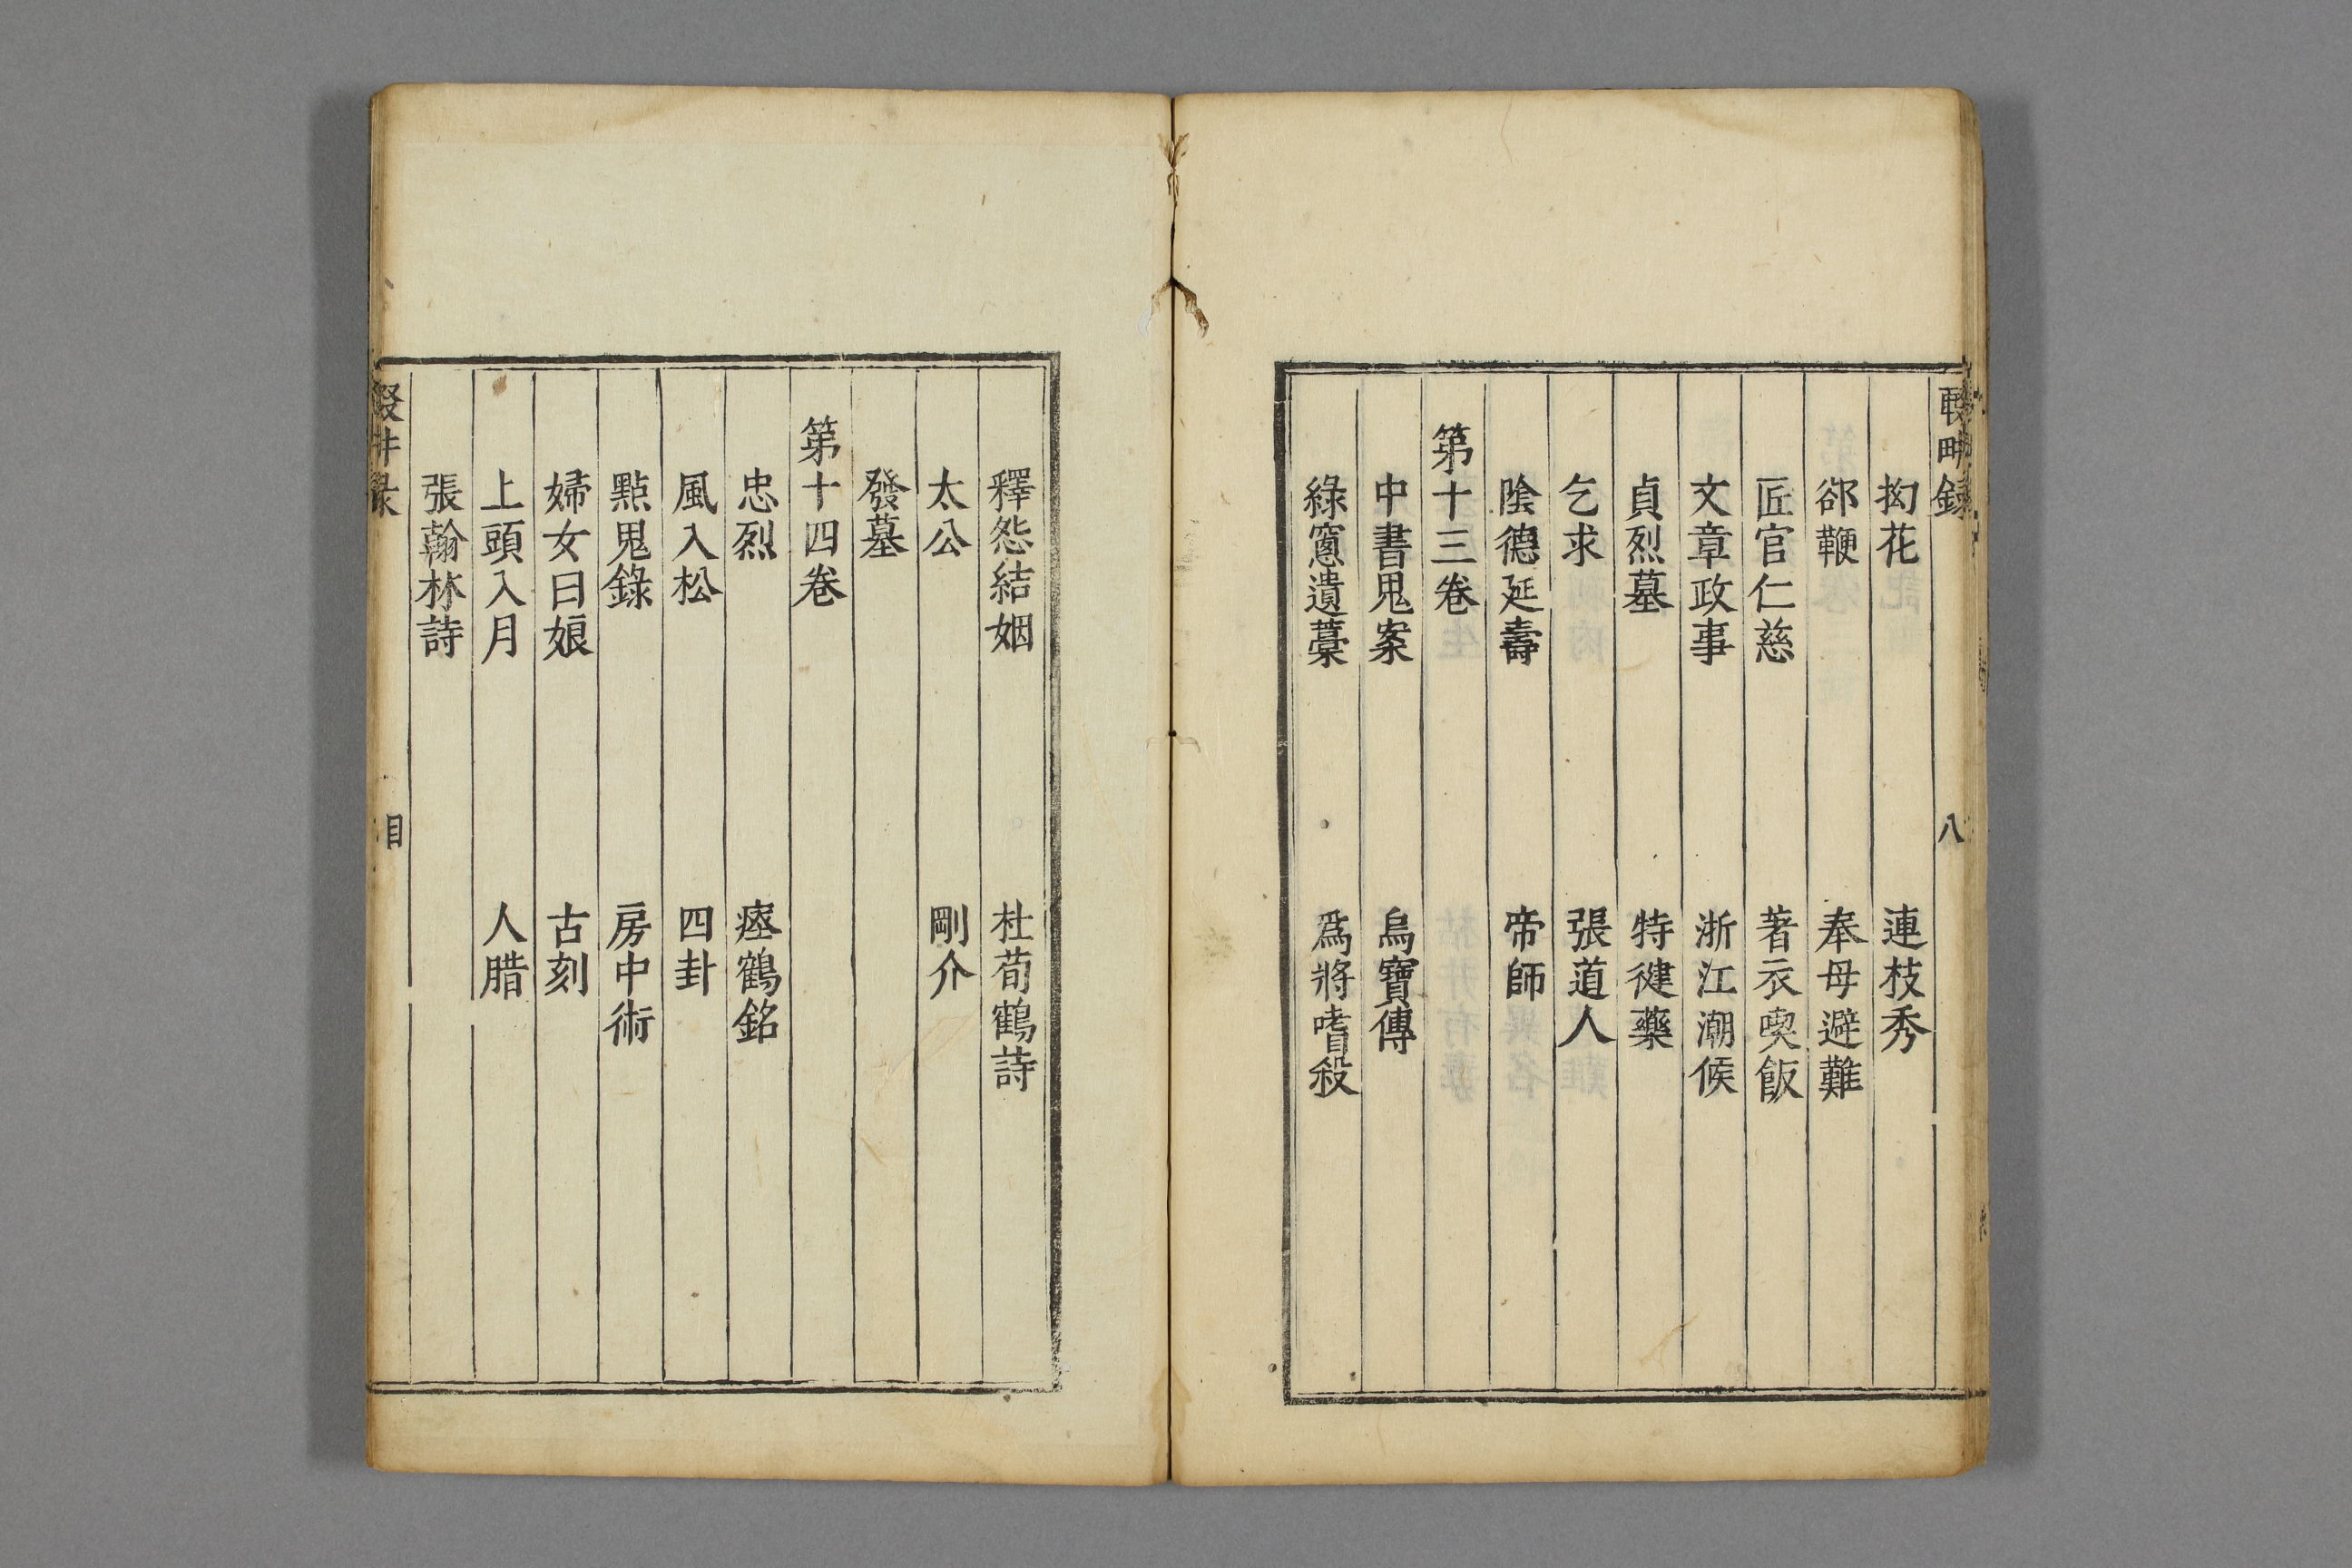 輟畊錄 八
拘花 連枝秀
郤鞭 奉母避難
匠官仁慈 著衣喫飯
文章政事 浙江潮候
貞烈墓 特健藥
乞求 張道人
陰德延壽 帝師
第十三卷
中書鬼案 烏寶傳
綠窻遺藁 爲將嗜殺
釋怨結姻 杜荀鶴詩
太公 剛介
發墓
第十四卷
忠烈 瘞鶴銘
風入松 四卦
點鬼錄 房中術
婦女曰娘 古刻
上頭入月 人腊
張翰林詩
目